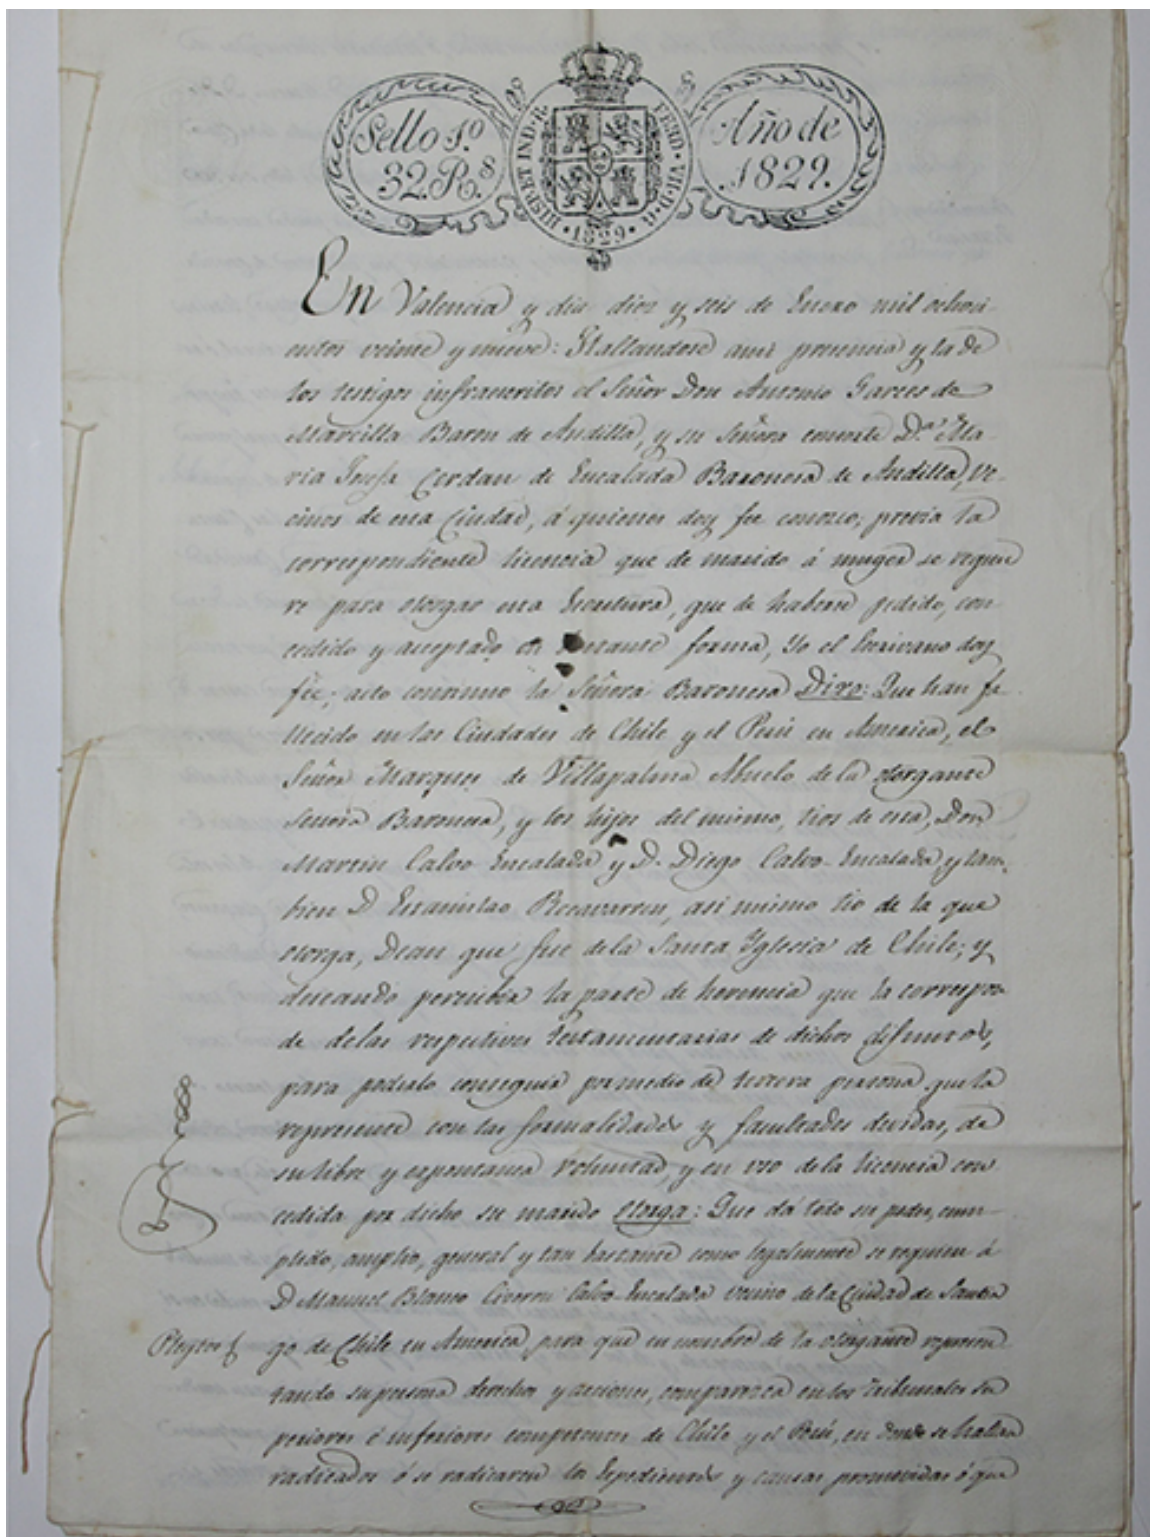 Sello 1.º
32.Rs
HISP.ET IND.R.
FERD.VII.D.G.
1829
Año de
1829.
En Valencia y dia diez y seis de Enero mil ochoci-
entos veinte y nueve: Hallandose ami presencia y la de
los testigos infraescritos el Señor Don Antonio Garces de
Marcilla Baron de Andilla, y su Señora consorte D.ª Ma-
ria Josefa Cerdan de Encalada Baronesa de Andilla, ve-
cinos de esta Ciudad, á quienes doy fee conozco; previa la
correspondiente licencia que de marido á muger se requie
re para otorgar esta Escritura, que de haberse pedido, con-
cedido y aceptado en bastante forma, Yo el Escrivano doy
fee; acto continuo la Señora Baronesa Dixo: Que han fa-
llecido en las Ciudades de Chile y el Perú en America, el
Señor Marques de Villapalma Abuelo de la otorgante
Señora Baronesa, y los hijos del mismo, tios de esta, Don
Martin Calvo Encalada y D. Diego Calvo-Encalada, y tam-
bien D Estanislao Recavarren, asi mismo tio de la que
otorga, Dean que fue de la Santa Yglesia de Chile; y
deseando percibir la parte de herencia que la correspon
de de las respectivas testamentarias de dichos difuntos,
para poderlo conseguir por medio de tercera persona que la
represente con las formalidades y facultades devidas, de
su libre y expontanea voluntad, y en uso de la licencia con-
cedida por dicho su marido Otorga: Que dá todo su poder, cum-
plido, amplio, general y tan bastante como legalmente se requiere á
D Manuel Blanco Ciceron Calvo-Encalada vecino de la Ciudad de Santia
Pleytos go de Chile en America, para que en nombre de la otorgante represen
tando su persona derechos y acciones, comparezca en los tribunales su
periores é inferiores competentes de Chile y el Perú, en donde se hallan
radicados ó se radicaren los Expedientes y causas promovidas ó que